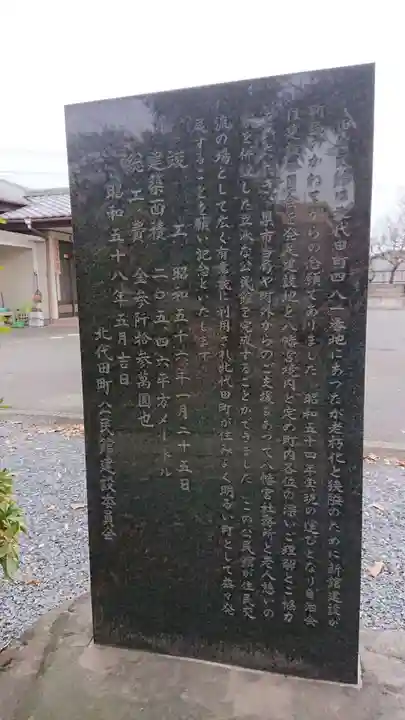 公民館は北代田町四八一番地にあったが老朽化と狭隘のために新館建設が
町民かねてからの念願でありました 昭和五十四年実現の運びとなり自治会
は建設委員会を発足建設地を八幡宮境内と定め町内各位の深いご理解とご協力
市当局や町外からのご支援もあって八幡宮社務所と老人憩いの
を併設した立派な公民館を完成することができました この公民館が住民交
流の場として広く有意義に利用され北代田町が住みよく明るい町として益々発
展することを願い記念といたします
竣工 昭和五十六年一月二十五日
建築面積 二〇五.四六平方メートル
総工費 金参阡拾参萬圓也
昭和五十八年五月吉日
北代田町公民館建設委員会